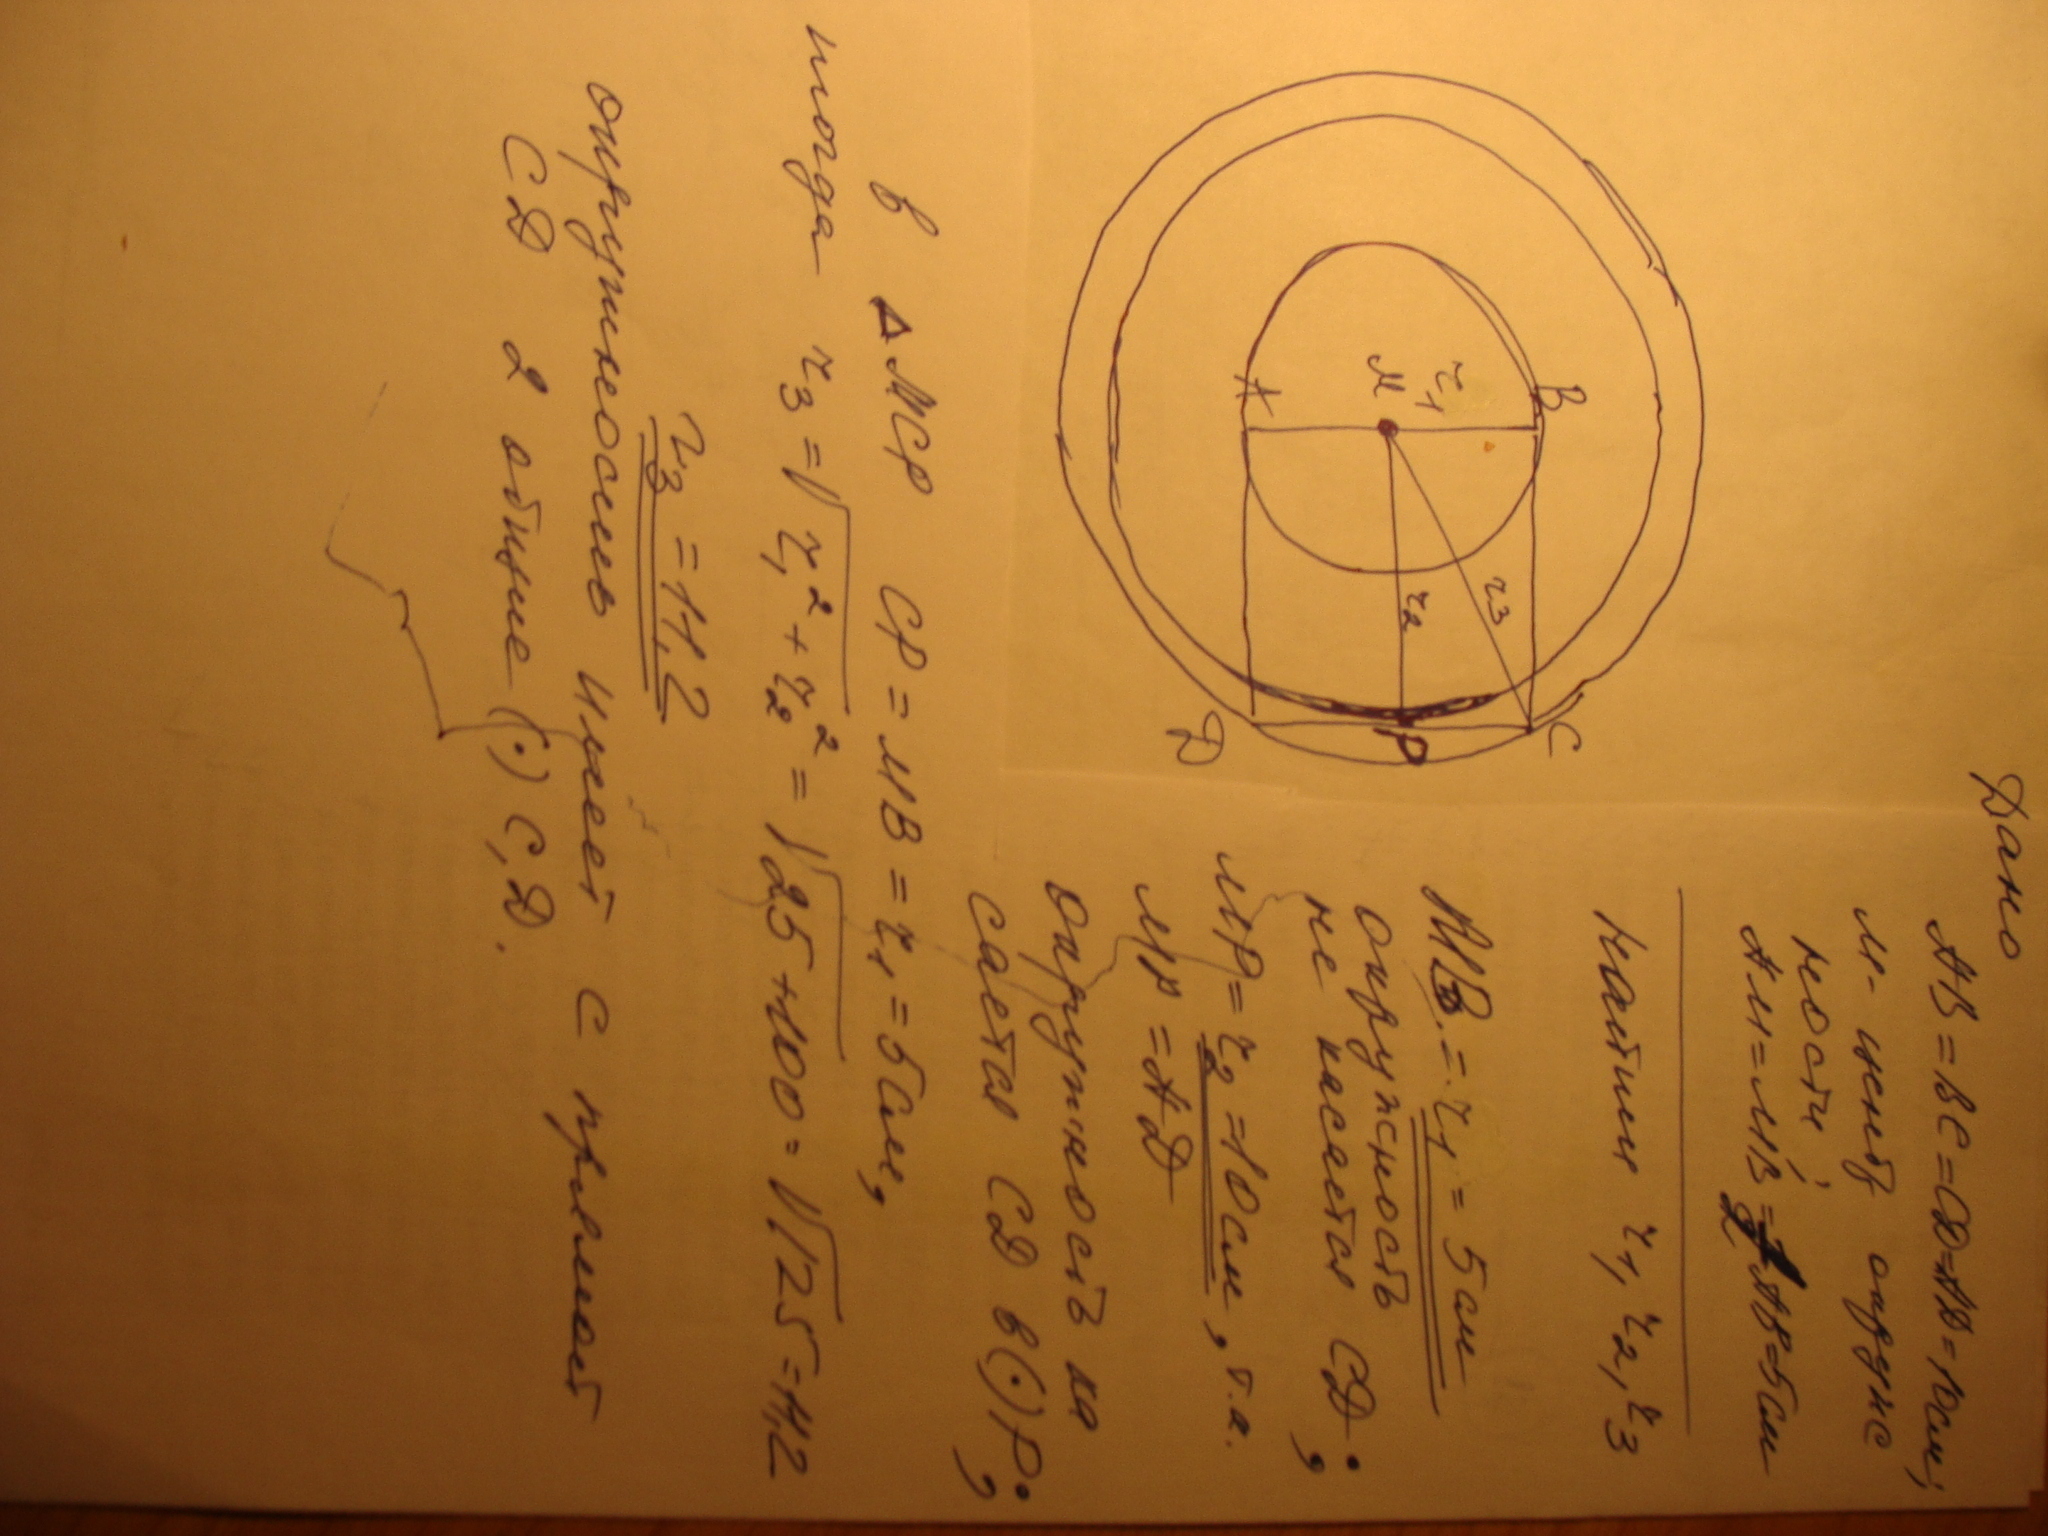 Дано
AB = BC = CD = AD = 10см;
М - центр окруж
ности;
AM = MB = 1/2 AB = 5см
Найти r1, r2, r3
MB = r1 = 5 см
окружность
не касается CD;
MP = r2 = 10см, т.к.
MP = AD
окружность ка
сается CD в (·) P;
B
A
M
r1
r2
r3
C
P
D
в Δ MCP CP = MB = r1 = 5см,
тогда r3 = √r1² + r2² = √25 + 100 = √125 = 11,2
r3 = 11,2
окружность имеет с прямой
CD 2 общие (·) C, D.